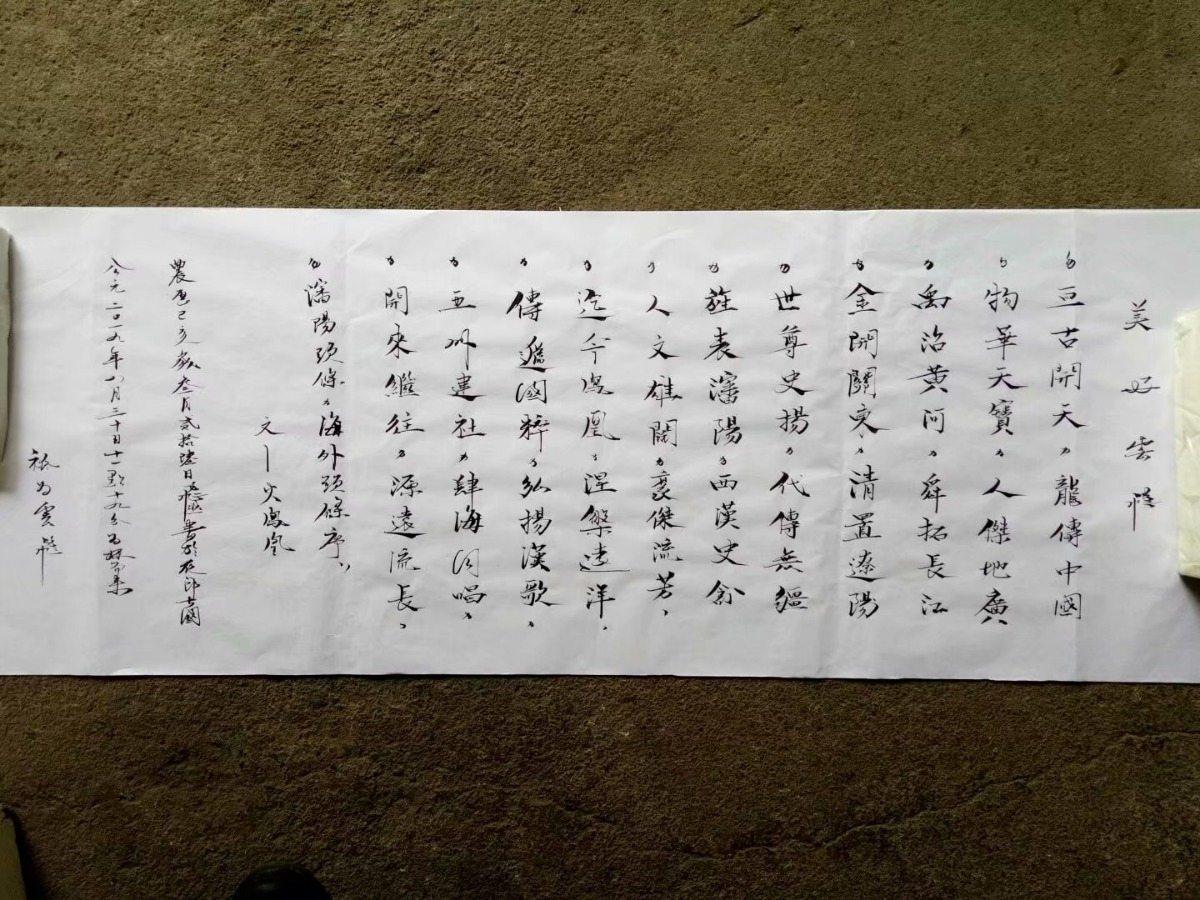 美好雲
亘古開天,龍傳中國
物華天寶,人傑地廣
禹治黄河,舜拓長江
金開關東,清置遼陽
世尊史揚,代傳無疆
旌表瀋陽,西漢史
人文雄闊,豪傑流芳,
迄今鳳凰,涅槃遠洋,
傳遞國粹,弘揚漢歌,
五州建社,肆海同唱,
開來繼往,源遠流長,
瀋陽頭條,海外頭條序,
文—火鳳凰
農历己亥歲叁月貳拾陸日書於
公元二〇一九年月三十日十一點十九分